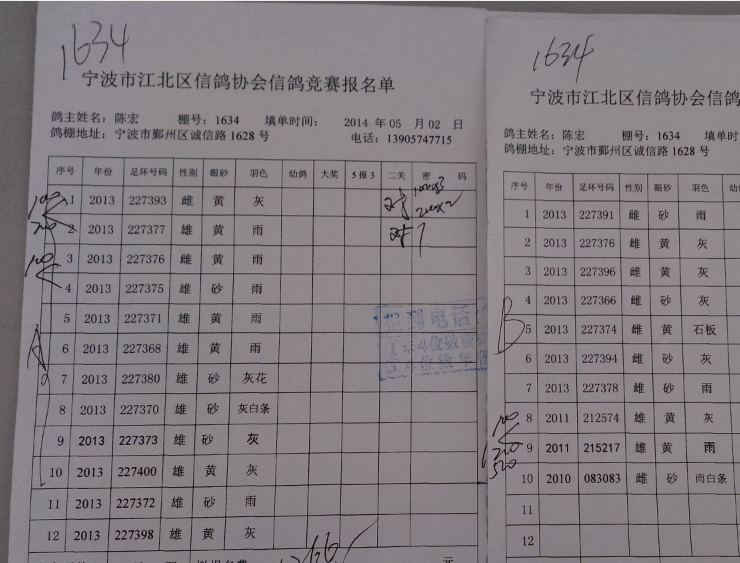 1634
宁波市江北区信鸽协会信鸽竞赛报名单
鸽主姓名：陈宏 棚号：1634 填单时间： 2014 年 05 月 02 日
鸽棚地址：宁波市鄞州区诚信路 1628 号 电话：13905747715
序号 年份 足环号码 性别 眼砂 羽色 幼鸽 大奖 5报3 二关 密 码
1 2013 227393 雌 黄 灰
2 2013 227377 雄 黄 雨
3 2013 227376 雌 黄 雨
4 2013 227375 雄 砂 雨
5 2013 227371 雄 黄 雨
6 2013 227368 雄 黄 雨
7 2013 227380 雄 砂 灰花
8 2013 227370 雄 砂 灰白条
9 2013 227373 雄 砂 灰
10 2013 227400 雄 黄 灰
11 2013 227372 雄 砂 雨
12 2013 227398 雄 黄 灰
A
报到电话
1634
宁波市江北区信鸽协会信鸽
鸽主姓名：陈宏 棚号：1634 填单时
鸽棚地址：宁波市鄞州区诚信路 1628 号
序号 年份 足环号码 性别 眼砂 羽色 幼
1 2013 227391 雌 砂 雨
2 2013 227376 雌 黄 灰
3 2013 227396 雌 黄 灰
4 2013 227366 雌 砂 灰
5 2013 227374 雌 黄 石板
6 2013 227394 雌 砂 灰
7 2013 227378 雌 砂 雨
8 2011 212574 雌 黄 灰
9 2011 215217 雌 黄 雨
10 2010 083083 雌 砂 雨白条
11
12
B